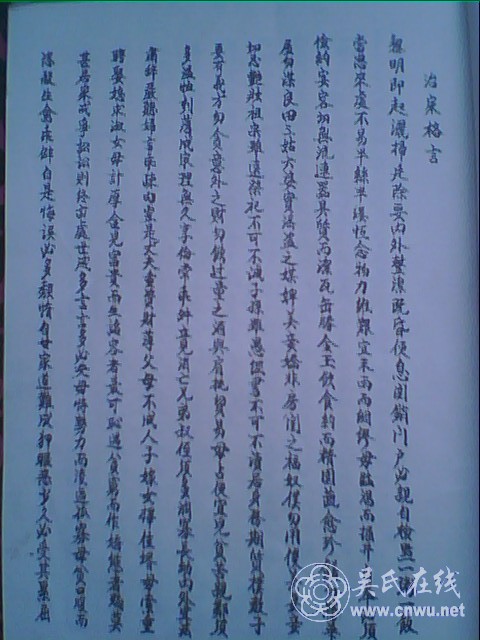 治家格言
黎明即起灑掃庭除要內外整潔既昏便息關鎖門戶必親自檢點一粥一飯
當思來處不易半絲半縷恆念物力維艱宜未雨而綢繆毋臨渴而掘井須
儉約宴客切勿流連器具質而潔瓦缶勝金玉飲食約而精園蔬愈珍華
屋勿謀良田三姑六婆實淫盜之媒婢美妾嬌非房閨之福奴僕勿用俊美妻妾
切忌艷妝祖宗雖遠祭祀不可不誠子孫雖愚經書不可不讀居身務期質樸教子
要有義方勿貪意外之財勿飲過量之酒與肩挑貿易毋占便宜見貧苦親鄰須
多溫恤刻薄成家理無久享倫常乖舛立見消亡兄弟叔侄須多分潤寡長幼內外宜法
肅辭嚴聽婦言乖骨肉豈是丈夫重貲財薄父母不成人子嫁女擇佳婿毋索重
聘娶媳求淑女毋計厚奩見富貴而生諂容者最可恥遇貧窮而作驕態者賤莫
甚居家戒爭訟訟則終凶處世戒多言言多必失毋恃勢力而凌逼孤寡毋貪口腹而
恣殺生禽乖僻自是悔誤必多頹惰自甘家道難成狎暱惡少久必受其累屈
吴氏在线
www.cnwu.net